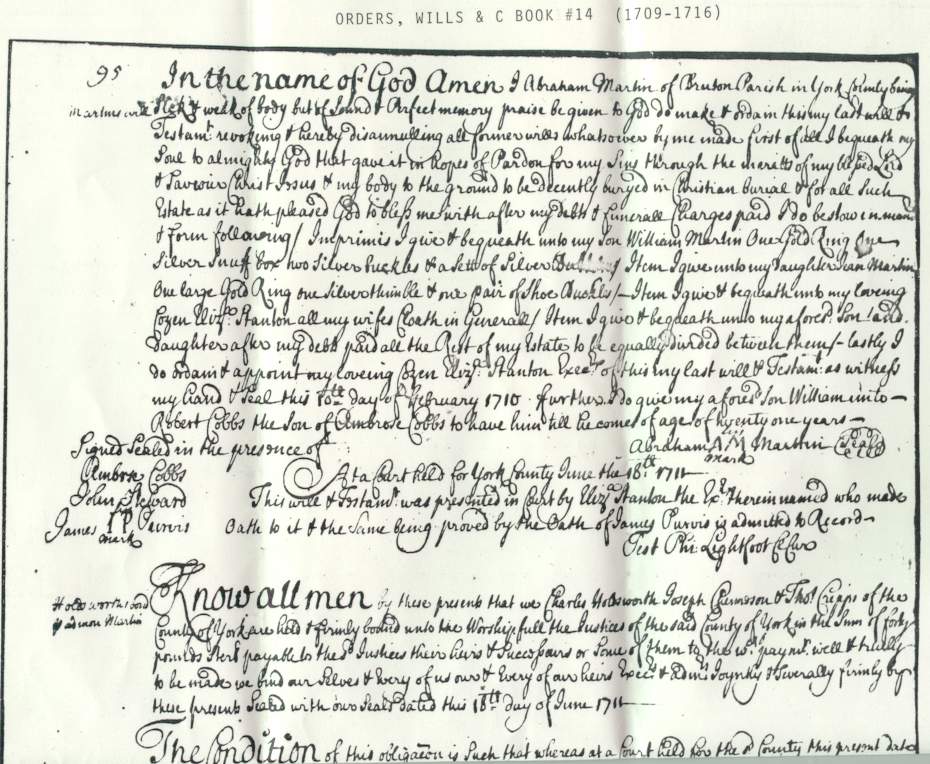 ORDERS, WILLS & C BOOK #14 (1709-1716)
95
In the name of God Amen I Abraham Martin of Bruton Parish in York County being
Martins will Sick & weak of body but of Sound & Perfect memory praise be given to God do make & ordain this my last will &
Testamt. revoking & hereby disannulling all former wills whatsoever by me made first of all I bequeath my
Soul to almighty God that gave it in hopes of Pardon for my Sins through the meretts of my blessed Lord
& Saviour Christ Jesus & my body to the ground to be decently buryed in Christian burial & for all Such
Estate as it hath pleased God to bless me with after my debts & funerall Charges paid I do bestow in manr
& form following / Imprimis I give & bequeath unto my Son William Martin One Gold Ring One
Silver Snuff box two Silver buckles & a Sett of Silver Item I give unto my Daughter Jean Martin
One large Gold Ring one Silver thimble & one pair of Shoe Buckls/— Item I give & bequeath unto my loveing
Cozen Elizt. Stanton all my wifes Cloath in Generall/ Item I give & bequeath unto my afores.d Son and
Daughter after my debts paid all the Rest of my Estate to be equally divided between them/— lastly I
do ordain & appoint my loveing Cozen Elizt. Stanton Execr. of this my last will & Testamt. as witness
my hand & Seal this 10th. Day of February 1710. further I do give my afores.d Son William unto—
Robert Cobbs the Son of Ambrose Cobbs to have him till he comes of age of twenty one years—
Signed Sealed in the presence of Abraham AM Martin Seald
mark
Ambrose Cobbs At a Court held for York County June the 18th. 1711
John Steward This will & Testamt. was presented in Court by Elizt. Stanton the Exr. therein named who made
James Purvis Oath to it & the Same being proved by the Oath of James Purvis is admitted to Record—
mark Test Phi: Lightfoot Cl Cur
Holdsworths bond Know all men by these presents that we Charles Holdsworth Joseph Chermeson & Thos. Cripps of the
p admon Martin County of York are held & firmly bound unto the Worshipfull the Justices of the said County of York in the Sum of forty
pounds Sterl payable to the sd. Justices their heirs & Successours or Some of them to the wch. paymt. well & truely
to be made we bind our Selves & every of us our & Every of our heirs Execrs. & Admrs. Joyntly & Severally firmly by
these presents Sealed with our Seals dated this 18th. day of June 1711
The Condition of this obligation is Such that whereas at a Court held for the sd. County this present date